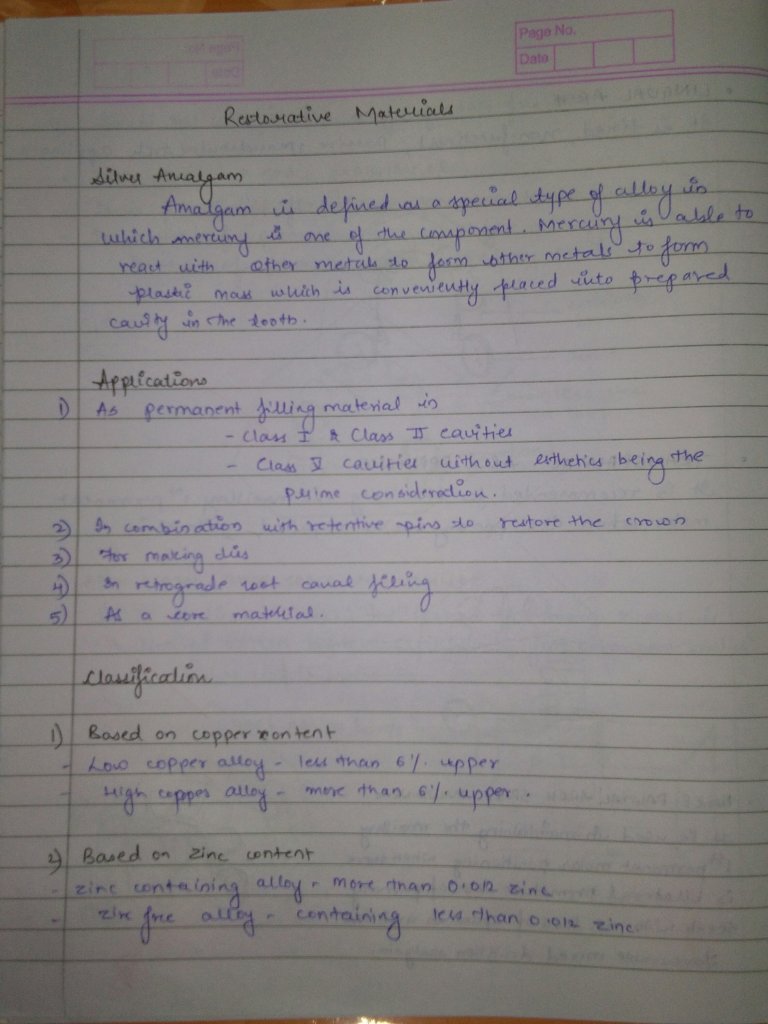 Page No.
Date
Restorative Materials
Silver Amalgam
Amalgam is defined as a special type of alloy in
which mercury is one of the component. Mercury is able to
react with other metals to form other metals to form
plastic mass which is conveniently placed into prepared
cavity in the tooth.
Applications
1) As permanent filling material in
- Class I & Class II cavities
- Class V cavities without esthetics being the
prime consideration.
2) In combination with retentive pins to restore the crown
3) For making dies
4) In retrograde root canal filling
5) As a core material.
Classification
1) Based on copper content
- Low copper alloy - less than 6%. upper
- High copper alloy - more than 6%. upper.
2) Based on zinc content
- zinc containing alloy - more than 0.012 zinc
- zinc free alloy - containing less than 0.012 zinc